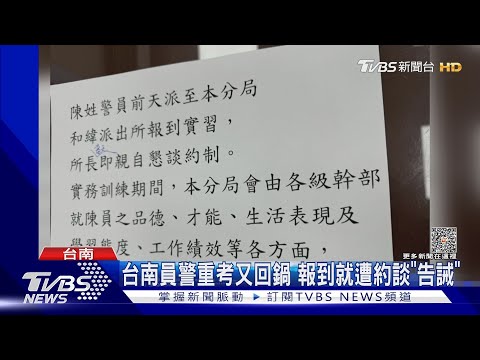 TVBS新聞台 HD
陳姓警員前天派至本分局
和緯派出所報到實習，
所長即親自懇談約制。
實務訓練期間，本分局會由各級幹部
就陳員之品德、才能、生活表現及
學習態度、工作績效等各方面，
更多新聞在這裡
台南
台南員警重考又回鍋 報到就遭約談"告誡"
TVBS NEWS
掌握新聞脈動 ▶ 訂閱TVBS NEWS頻道